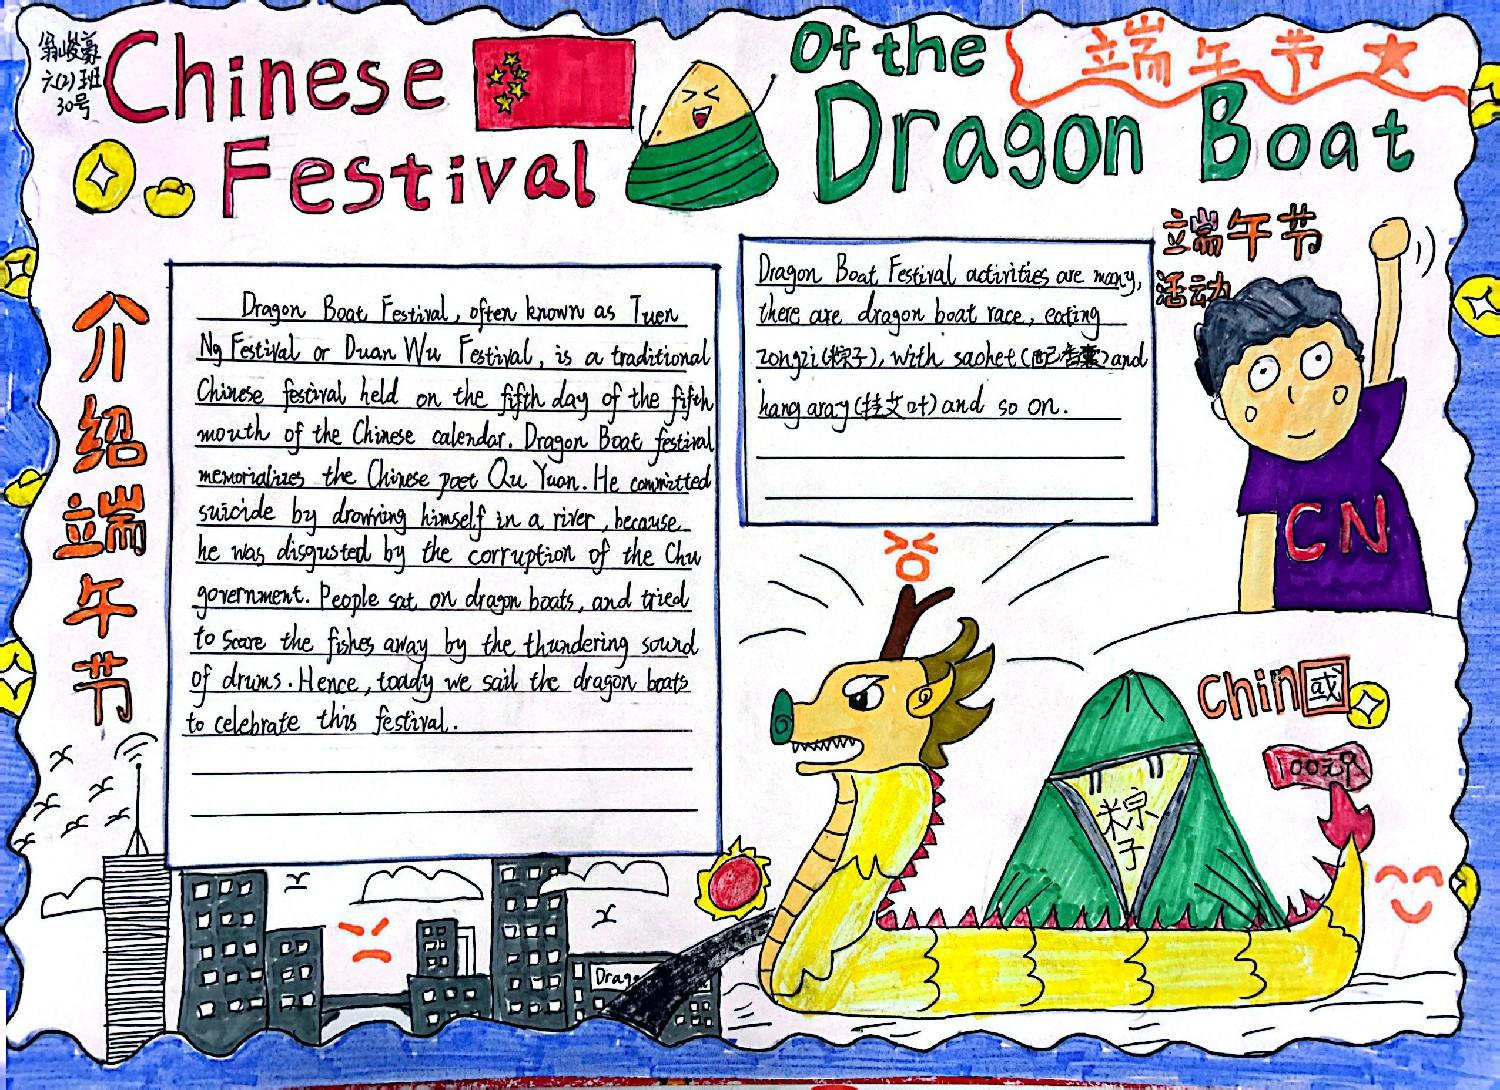 翁峻募
六(2)班
30号
Chinese
Festival
Of the
Dragon Boat
端午节
介绍端午节
Dragon Boat Festival, often known as Tuen
Ng Festival or Duan Wu Festival, is a traditional
Chinese festival held on the fifth day of the fifth
mouth of the Chinese calendar. Dragon Boat festival
memorializes the Chinese poet Qu Yuan. He committed
suicide by drowning himself in a river, because
he was disgusted by the corruption of the Chu
government. People sat on dragon boats, and tried
to scare the fishes away by the thundering sound
of drums. Hence, toady we sail the dragon boats
to celebrate this festival.
端午节
活动
Dragon Boat Festival activities are many,
there are dragon boat race, eating
zongzi(粽子), with sachet(配香囊)and
hang aray(挂艾叶)and so on.
CN
Chin国
100元
粽
子
Drag